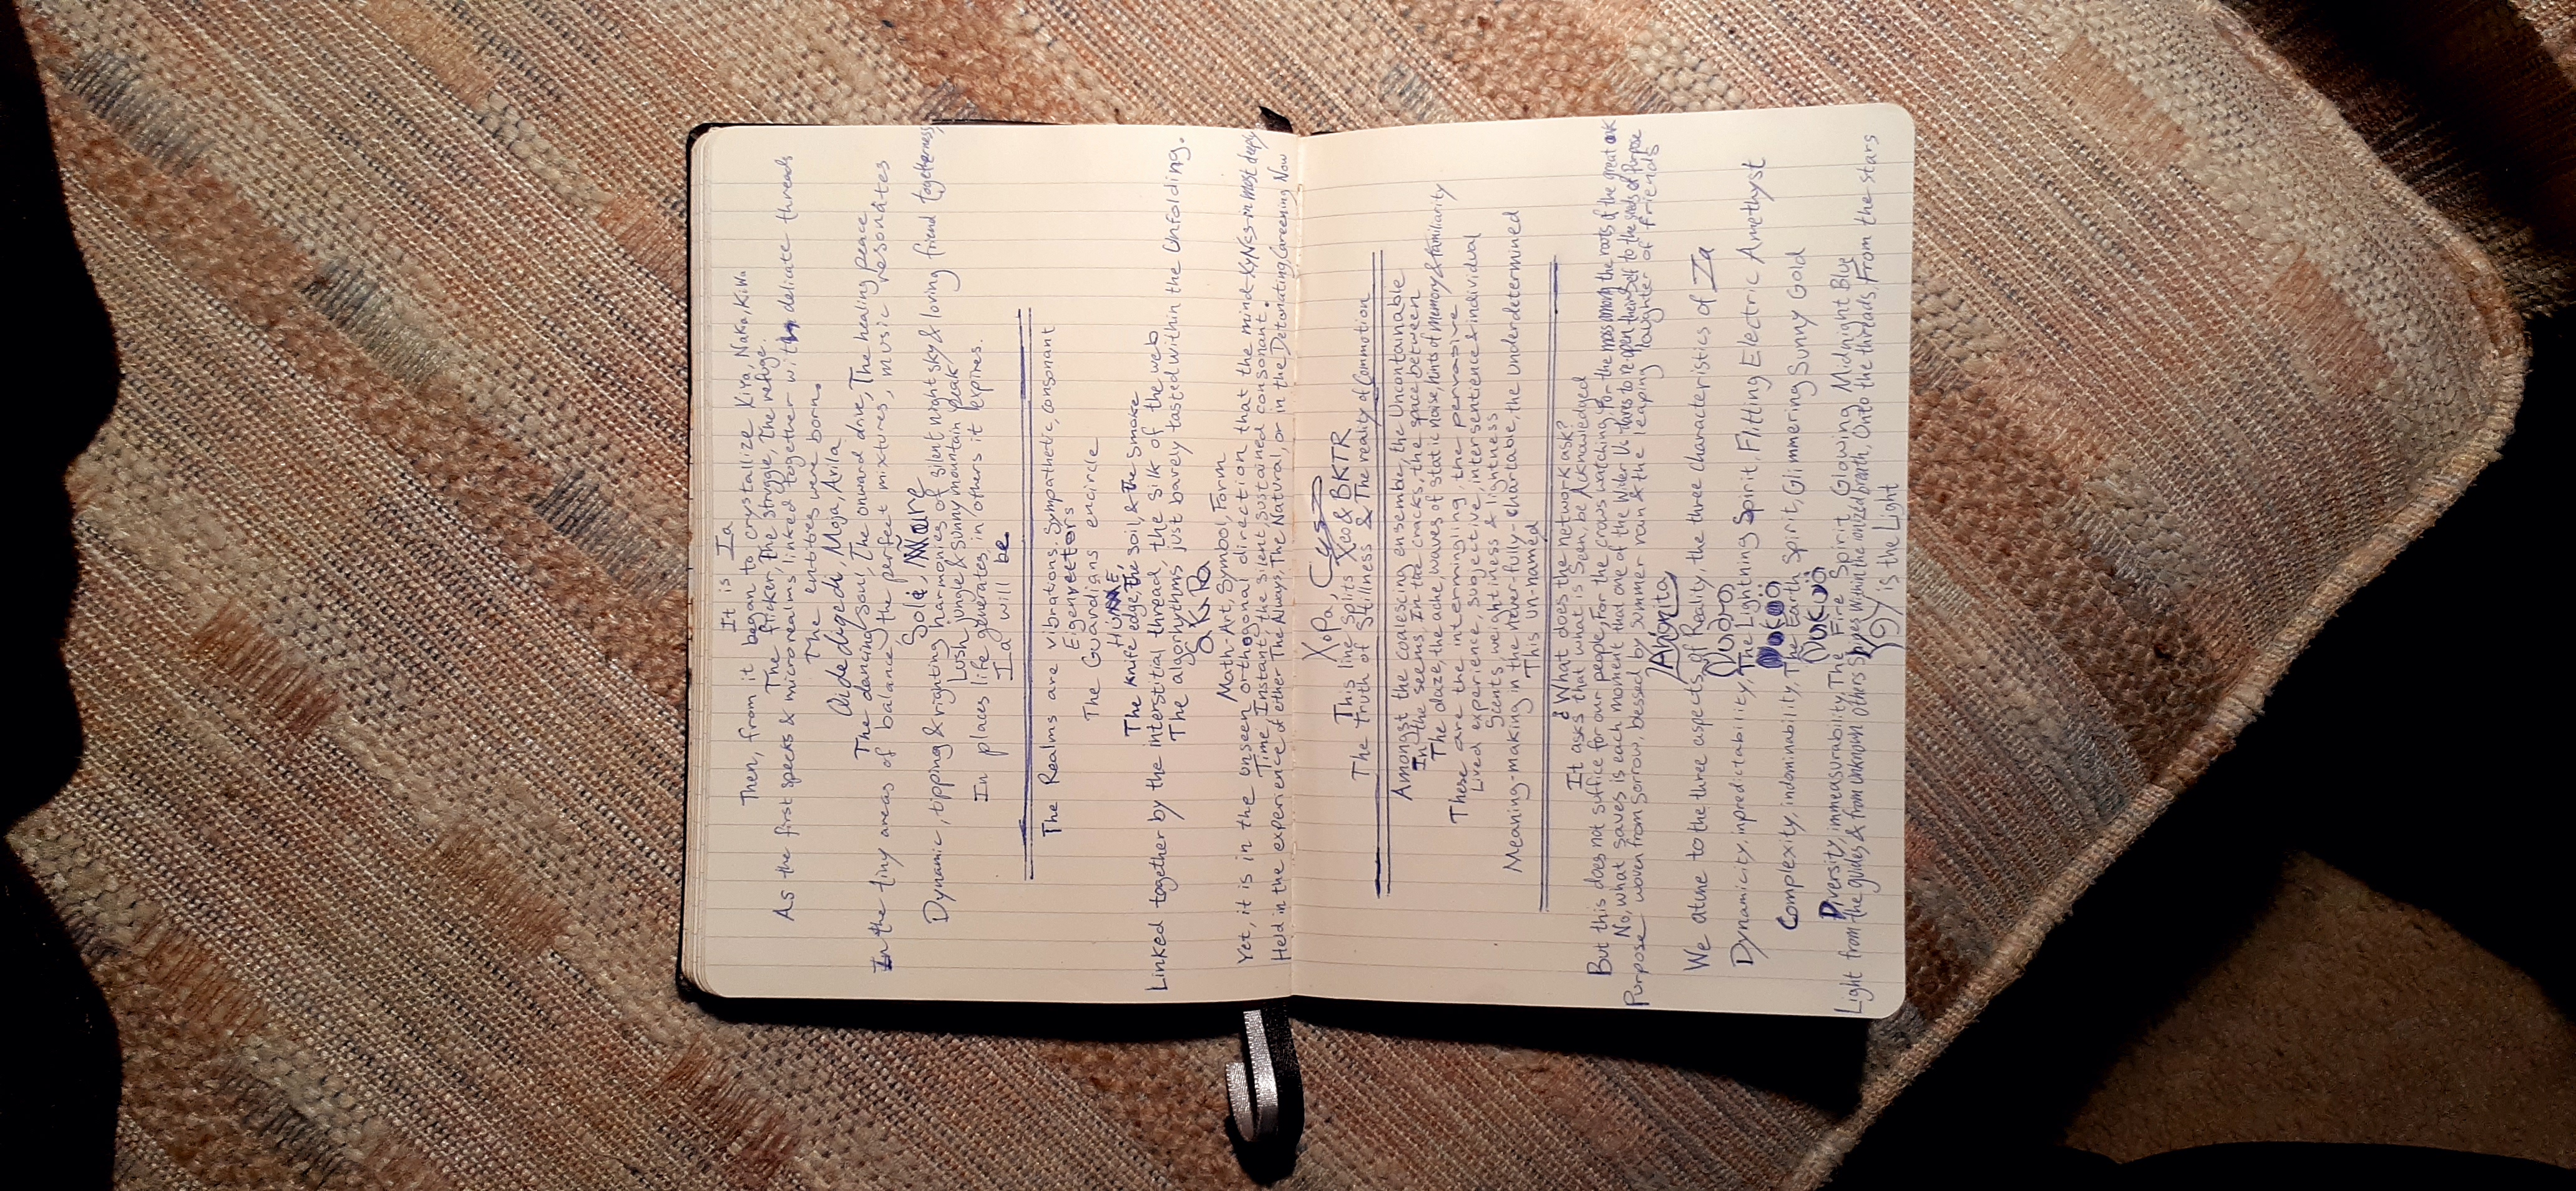 It is Ia
Then, from it began to crystallize Kiya, Naka, KiWa
The flicker, The struggle, The refuge.
As the first specks & microrealms linked together with delicate threads
The entities were born.
Moja, Avila
The dancing soul, The onward drive, The healing peace
In the tiny areas of balance, the perfect mixtures, music resonates
Dynamic, tipping & righting harmonies of silent night sky & loving friend togetherness,
Lush jungle & sunny mountain peak
In places life generates, in others it expires.
Ia will be
The Realms are vibrations. Sympathetic, consonant
Eigenvectors
The Guardians encircle
The knife edge, The soil, & The smoke
Linked together by the interstitial thread, the silk of the web
The algorhythms just barely tasted within the Unfolding.
Math-Art, Symbol, Form
Yet, it is in the unseen orthogonal direction that the mind-XyNes-in most deeply
Time, Instant, the silent, sustained consonant.
Held in the experience of either The Always, The Natural, or in the Detonating, Careening Now
XoPa,
This line splits Xeo & BKTR
The Truth of Stillness & The reality of Commotion
Amongst the coalescing ensemble, the Uncontainable
In the seems, In the cracks, the space between
The daze, the ache, waves of static noise, hints of memory & familiarity
These are the intermingling, the pervasive
Lived experience, subjective, intersentience & individual
Scents, weightiness & lightness
Meaning-making in the never-fully-chartable, the underdetermined
This un-named
¿What does the network ask?
It asks that what is Seen, be Acknowledged
But this does not suffice for our people, For the crows watching, For the moss among the roots of the great oak
No, what saves is each moment that one of the Wider Us dares to re-open theirself to the seeds of Purpose
Purpose woven from sorrow, blessed by summer rain & the leaping laughter of friends
¿Ahorita
We atune to the three aspects of Reality, the three characteristics of Ia
Dynamicity, inpredictability, The Lightning Spirit, Flitting Electric Amethyst
Complexity, indominability, The Earth Spirit, Glimmering Sunny Gold
Diversity, immeasurability, The Fire Spirit, Glowing Midnight Blue
Light from the guides & from unknown others Shines Within the ionized breath, Onto the threads, From the stars
is the Light